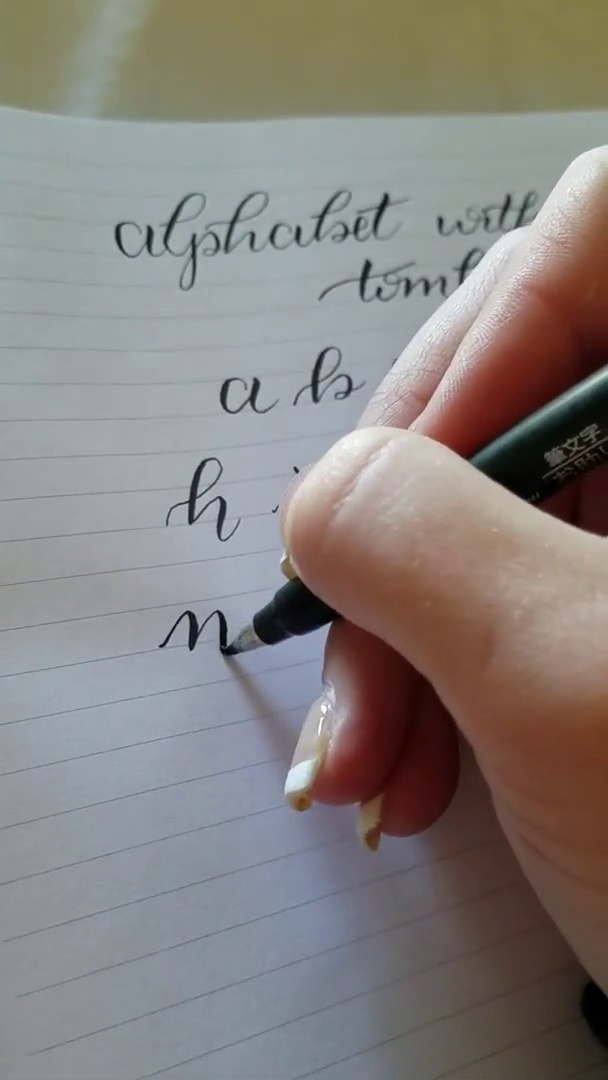 alphabet with
a b
h
n
筆文字